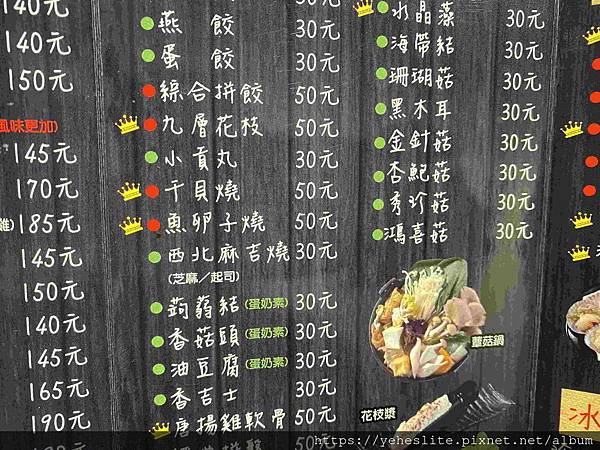 140元
140元
150元
風味更加)
145元
170元
185元
145元
150元
140元
145元
165元
190元
燕餃 30元
蛋餃 30元
綜合拼餃 50元
九層花枝 50元
小貢丸 30元
干貝燒 50元
魚卵子燒 50元
西北麻吉燒 30元
(芝麻／起司)
蒟蒻結(蛋奶素) 30元
香菇頭(蛋奶素) 30元
油豆腐(蛋奶素) 30元
香吉士 30元
唐揚雞軟骨 50元
水晶蒸 30元
海帶結 30元
珊瑚菇 30元
黑木耳 30元
金針菇 30元
杏鮑菇 30元
秀珍菇 30元
鴻喜菇 30元
蕈菇鍋
花枝漿
冰
https://yeheslite.pixnet.net/album